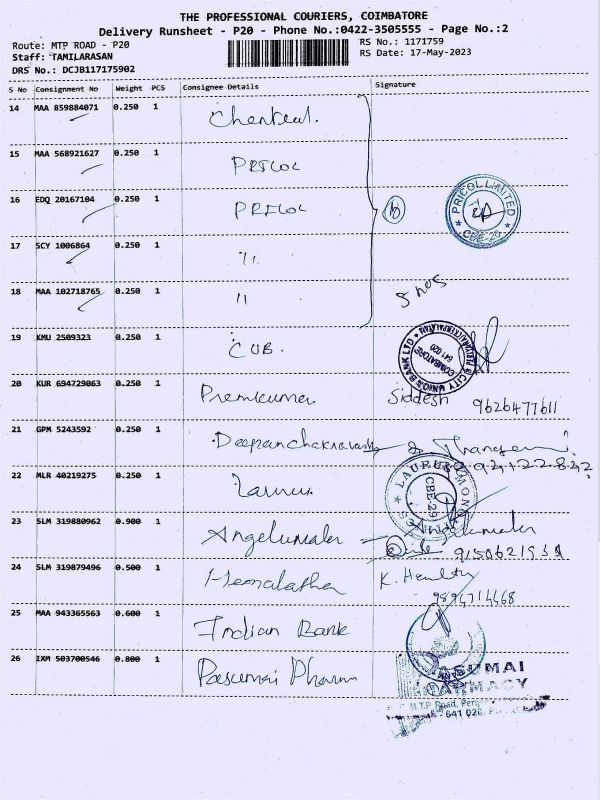 THE PROFESSIONAL COURIERS, COIMBATORE
Delivery Runsheet - P20 - Phone No.:0422-3505555 - Page No.:2
Route: MTP ROAD - P20 RS No.: 1171759
Staff: TAMILARASAN RS Date: 17-May-2023
DRS No.: DCJB117175902
S No Consignment No Weight PCS Consignee Details Signature
14 MAA 859884071 0.250 1
15 MAA 568921627 0.250 1 PRICOL
16 EDQ 20167104 0.250 1 PRICOL
PRICOL LIMITED
CBE-20
17 SCY 1006864 0.250 1 11
18 MAA 102718765 0.250 1 11
19 KMU 2509323 0.250 1 CUB.
CITY UNION BANK LTD
COIMBATORE
641 020
20 KUR 694729063 0.250 1 Premkumar Siddesh 9626477611
21 GPM 5243592 0.250 1 Deepanchakravarthy
22 MLR 40219275 0.250 1 Laurus
LAURUS
CBE-29
23 SLM 319880962 0.900 1 Angelumaler
24 SLM 319879496 0.500 1 Hemalatha K.
9894714468
25 MAA 943365563 0.600 1 Indian Bank
26 IXM 503700546 0.800 1 Pasumai Pharm
PASUMAI
PHARMACY
M.T.P. Road,
641 026